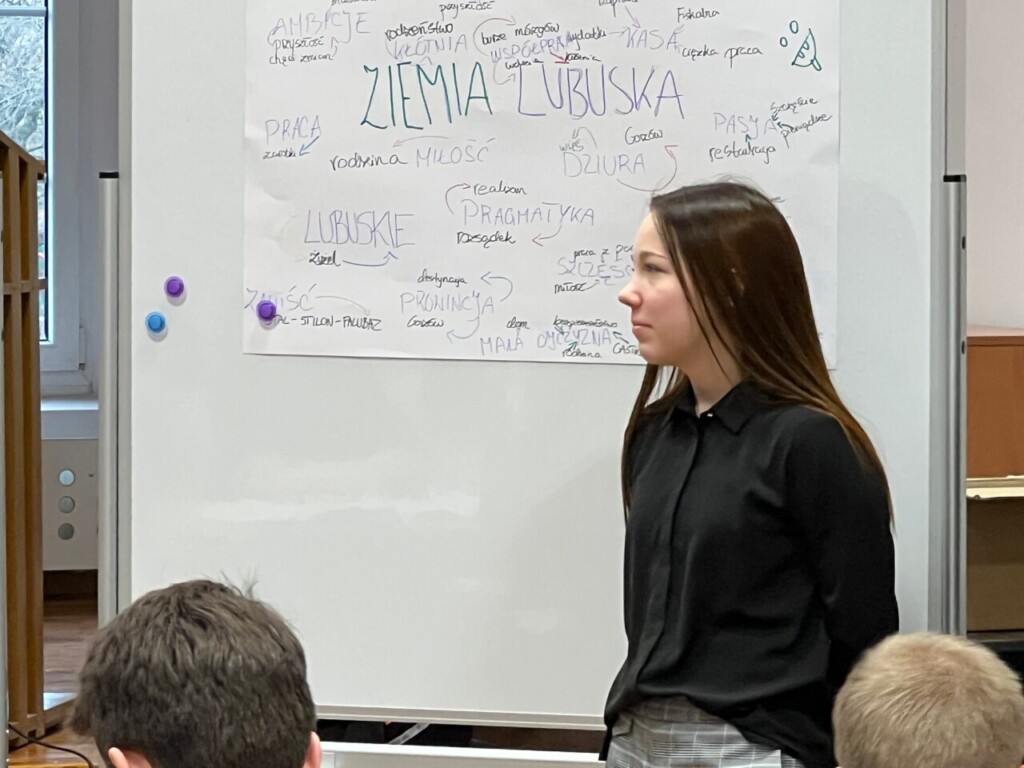 AMBICJE
przyszłość
chęć zmian
rodzeństwo
KŁÓTNIA
przyszłość
burze mózgów
WSPÓŁPRACA
wydatki
KASA
Fiskalna
ciężka praca
ZIEMIA LUBUSKA
PRACA
zarobki
rodzina MIŁOŚĆ
wieś
DZIURA
Gorzów
PASJA
szczęście
pieniądze
restauracja
realizm
PRAGMATYKA
rozsądek
LUBUSKIE
Żużel
destynacja
PROWINCJA
Gorzów
praca z
SZCZĘŚ
miłość
STILON-FALUBAZ
dom
bezpieczeństwo
MAŁA OJCZYZNA
rodzina